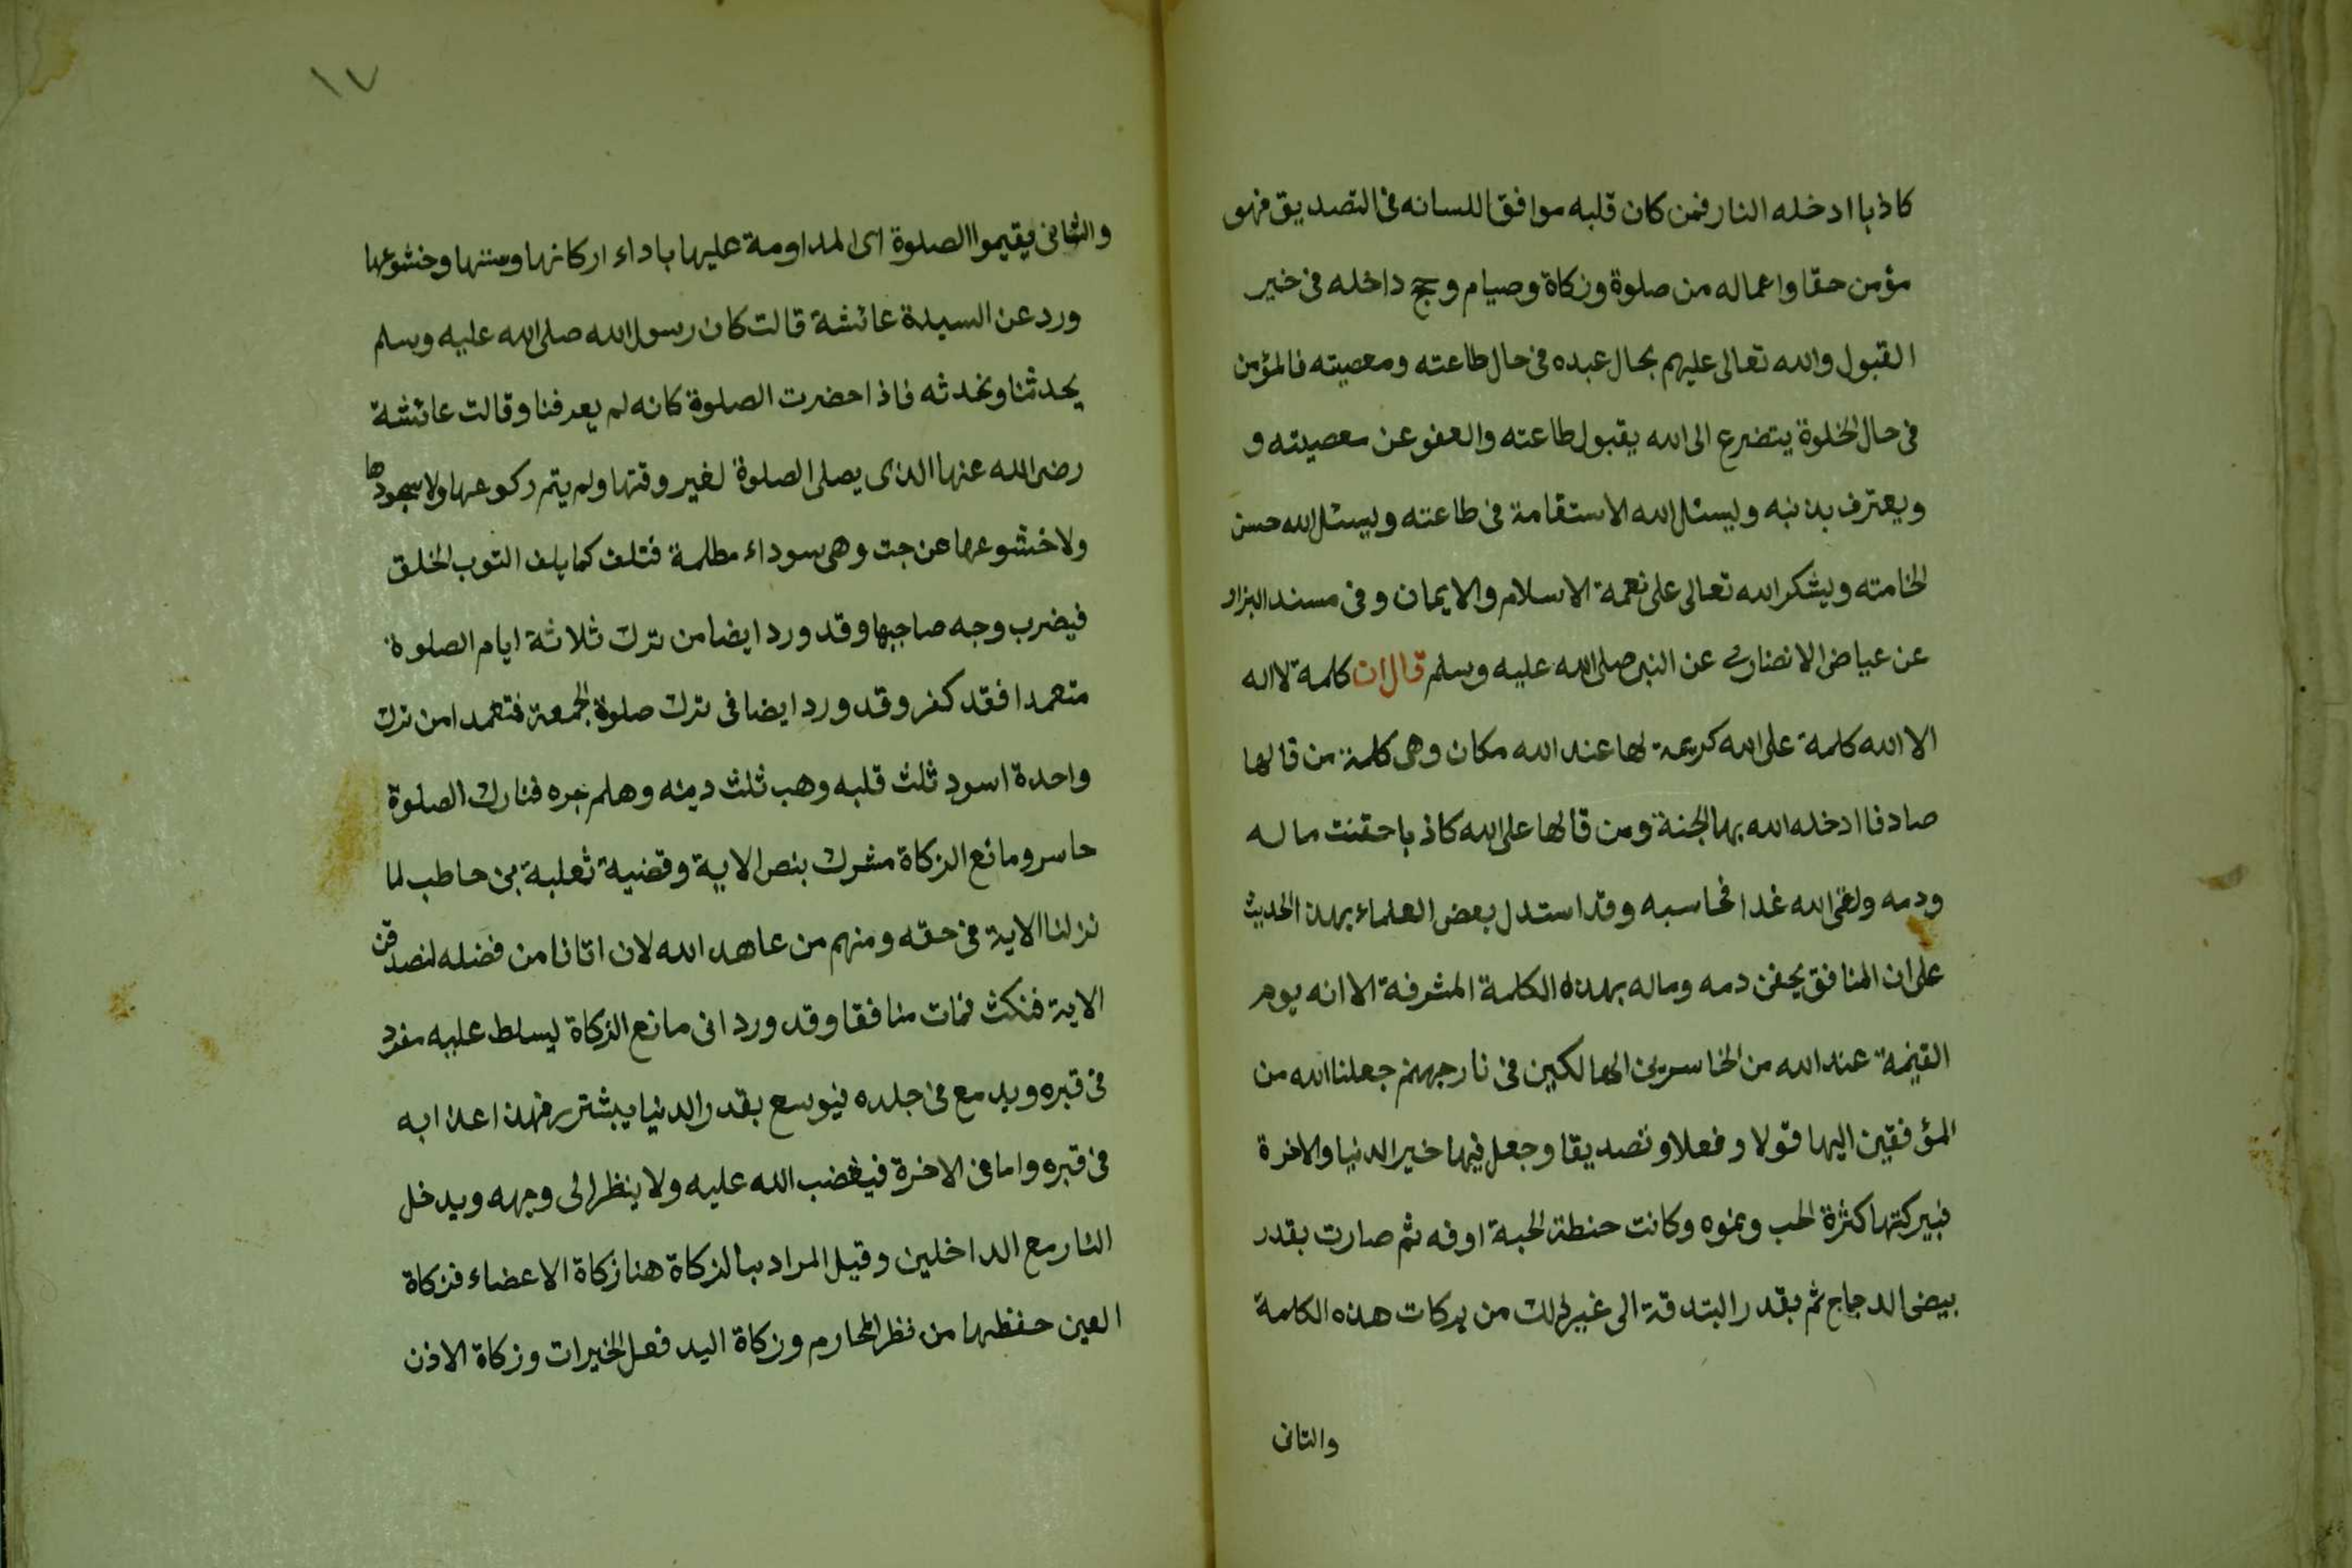 كاذبا ادخله النار فمن كان قلبه موافقا للسانه فى التصديق فهو
مؤمن حقا واعماله من صلوة وزكاة وصيام وحج داخله فى خير
القبول والله تعالى عليهم بحال عبده فى حال طاعته ومعصيته فالمؤمن
فى حال الخلوة يتضرع الى الله يقبول طاعته والعفو عن معصيته و
ويعترف بذنبه ويسئل الله الاستقامة فى طاعته ويسئل الله حسن
الخامته ويشكر الله تعالى على نعمة الاسلام والايمان وفى مسند البزار
عن عياض الانصارى عن النبى صلى الله عليه وسلم قال ان كلمة لا اله
الا الله كلمة على الله كريمة لها عند الله مكان وهى كلمة من قالها
صادقا ادخله الله بها الجنة ومن قالها على الله كاذبا حقنت ماله
ودمه ولقى الله غدا فحاسبه وقد استدل بعض العلماء بهذا الحديث
على ان المنافق يحقن دمه وماله بهذه الكلمة المشرفة الا انه يوم
القيمة عند الله من الخاسرين الهالكين فى نار جهنم جعلنا الله من
المؤفقين اليها قولا وفعلا وتصديقا وجعل فيها خير الدنيا والاخرة
فببركتها كثرة الحب ونموه وكانت حنطة الحبة اوفه ثم صارت بقدر
بيض الدجاج ثم بقدر البندقة الى غير ذلك من بركات هذه الكلمة
والثانى
١٧
والثانى يقيموا الصلوة اى المداومة عليها باداء اركانها وسننها وخشوعها
ورد عن السيدة عائشة قالت كان رسول الله صلى الله عليه وسلم
يحدثنا ونحدثه فاذا حضرت الصلوة كانه لم يعرفنا وقالت عائشة
رضى الله عنها الذى يصلى الصلوة لغير وقتها ولم يتم ركوعها ولا سجودها
ولا خشوعها عن جت وهى سوداء مظلمة فتلف كما يلف التوب الخلق
فيضرب وجه صاحبها وقد ورد ايضا من ترك ثلاثة ايام الصلوة
متعمدا فقد كفر وقد ورد ايضا فى ترك صلوة الجمعة فتعمدا من ترك
واحدة اسود ثلث قلبه وهب ثلث دينه وهلم جره فتارك الصلوة
حاسر ومانع الزكاة مشرك بنص الاية وقضية ثعلبة بن حاطب لما
نزلنا الاية فى حقه ومنهم من عاهد الله لان اتانا من فضله لنصدقن
الاية فنكث فمات منافقا وقد ورد انى مانع الزكاة ليسلط عليه
فى قبره ويدمع فى جلده فيوسع بقدر الدنيا فهذا عذابه
فى قبره واما فى الاخرة فيغضب الله عليه ولا ينظر الى وجهه ويدخل
النار مع الداخلين وقيل المراد بالزكاة هنا زكاة الاعضاء فزكاة
العين حفظها من نظر المحارم وزكاة اليد فعل الخيرات وزكاة الاذن